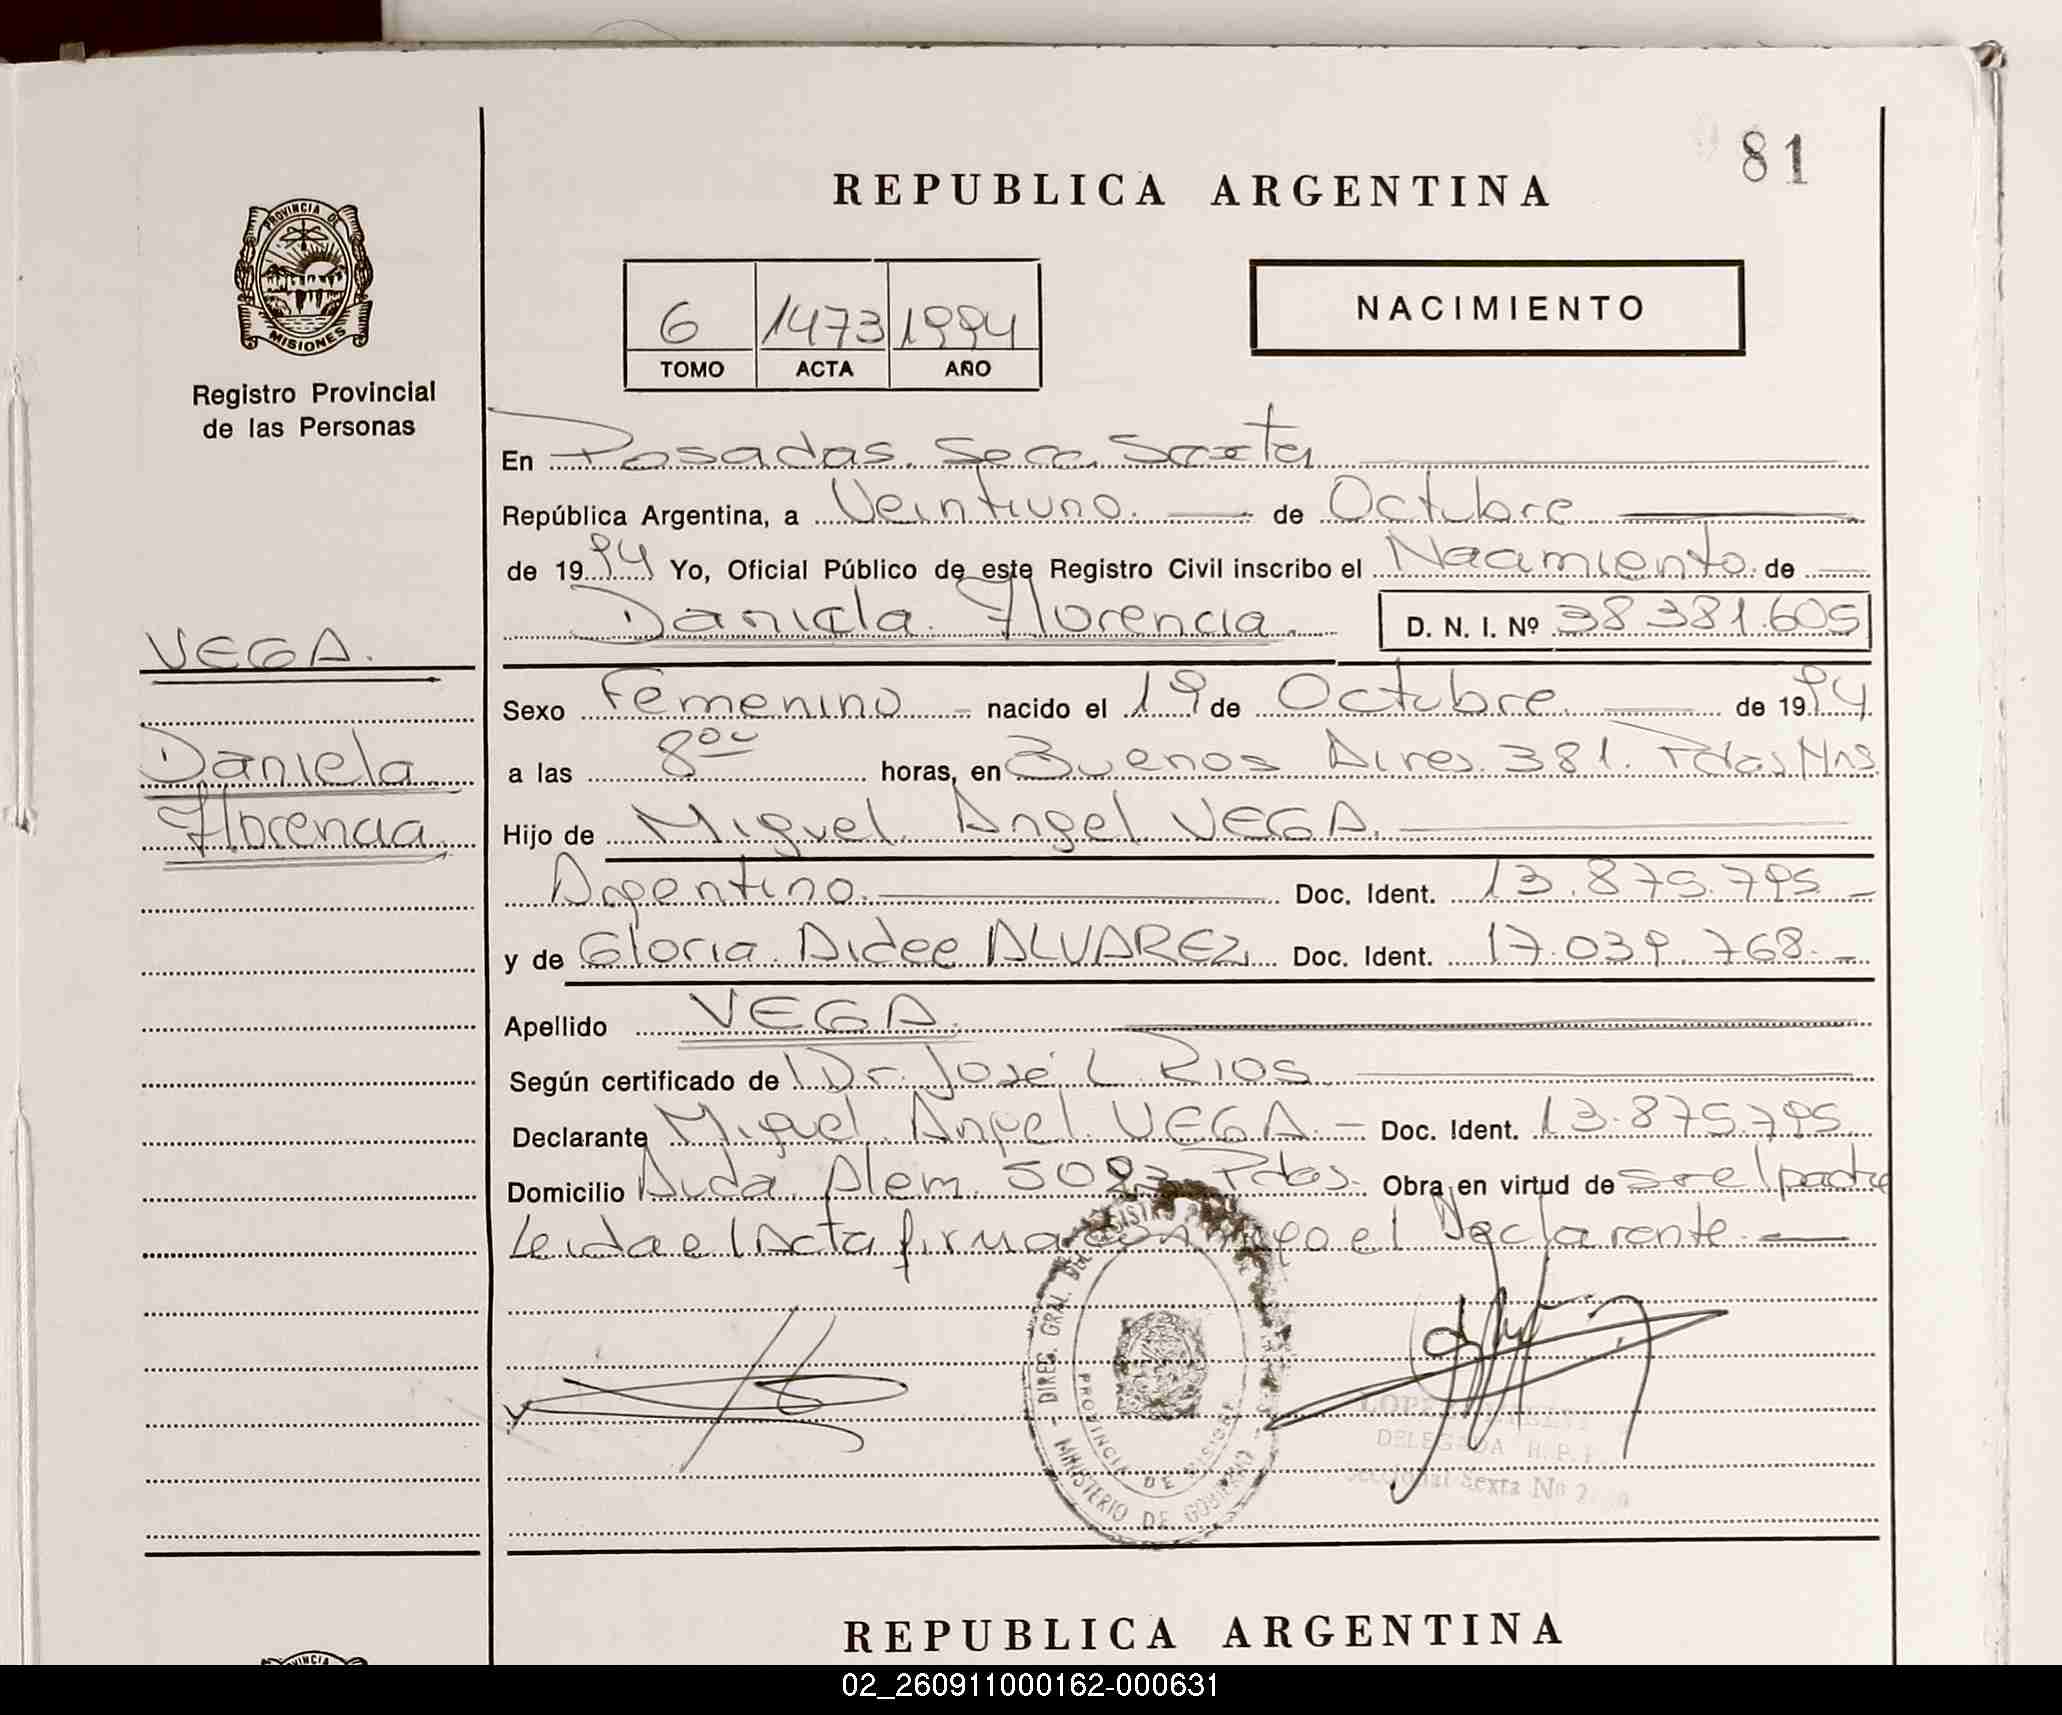 81
REPUBLICA ARGENTINA
PROVINCIA DE
MISIONES
Registro Provincial
de las Personas
6 1473 1994
TOMO ACTA AÑO
NACIMIENTO
En Posadas. Secc. Sexta
República Argentina, a Veintiuno. de Octubre
de 1994 Yo, Oficial Público de este Registro Civil inscribo el Nacimiento. de
Daniela. Florencia. D. N. I. Nº 38.381.605
VEGA.
Daniela
Florencia.
Sexo Femenino nacido el 19 de Octubre de 1994
a las 8ºº horas, en Buenos Aires. 381. Pdas Mns.
Hijo de Miguel. Angel VEGA.
Argentino. Doc. Ident. 13.875.795
y de Gloria. Aidee ALVAREZ, Doc. Ident. 17.039.768.
Apellido VEGA.
Según certificado de Dr. José L. RIOS
Declarante Miguel. Angel. VEGA. Doc. Ident. 13.875.795
Domicilio Avda. Alem. Pdas. Obra en virtud de ser el padre
Leida el Acta firma conmigo el Declarante.
DIREC. GRAL. DEL REGISTRO
PROVINCIA DE MISIONES
MINISTERIO DE GOBIERNO
LOPEZ
DELEGADA R.P.
Seccional Sexta Nº
REPUBLICA ARGENTINA
02_260911000162-000631